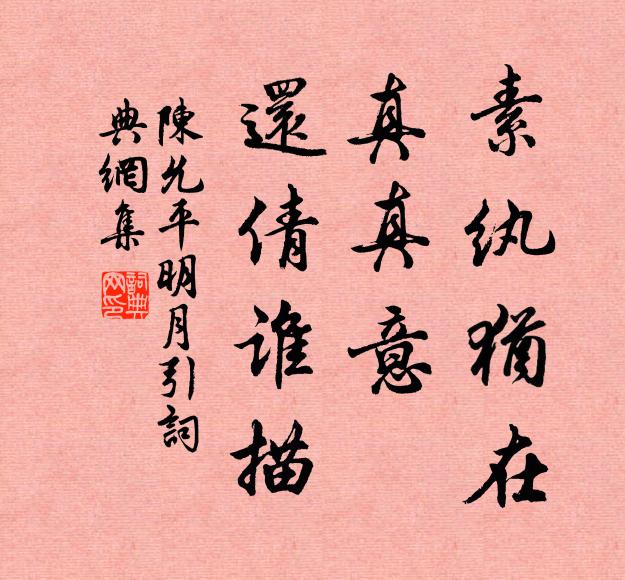 素紈猶在
真真意
還倩誰描
陳允平明月引詞
典網集
詞典
网印